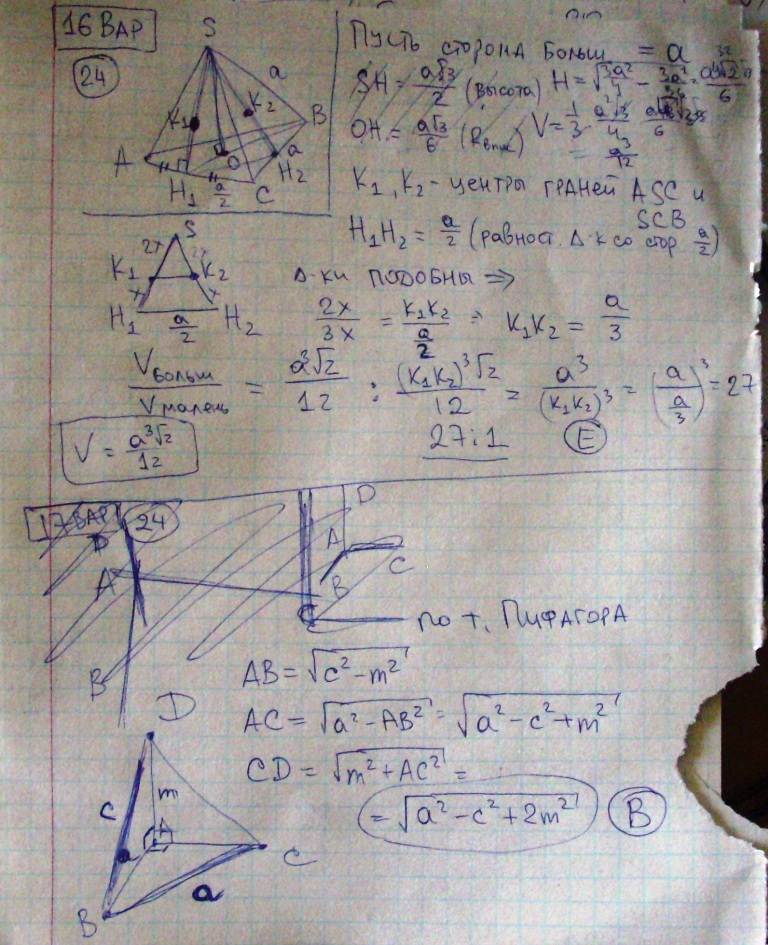 16 ВАР
24
S
a
K₁
K₂
B
A
O
a
H₂
H₁ a/2 C
Пусть сторона больш = a
SH = a√3/2 (высота) H = √(3a²/4 -
OH = a√3/6 (Rвпис) V = 1/3 · a²√3/4 ·
K₁, K₂ - центры граней ASC и
SCB
H₁H₂ = a/2 (равност. Δ-к со стор a/2)
S
2x 2x
K₁ K₂
x x
H₁ a/2 H₂
Δ-ки подобны ⇒
2x/3x = K₁K₂/(a/2) ⇒ K₁K₂ = a/3
Vбольш/Vмалень = a³√2/12 : (K₁K₂)³√2/12 = a³/(K₁K₂)³ = (a/(a/3))³ = 27
27:1 E
V = a³√2/12
17 ВАР 24
D
A
B
D
A
B
C
C
по т. Пифагора
AB = √(c² - m²)
AC = √(a² - AB²) = √(a² - c² + m²)
CD = √(m² + AC²) =
= √(a² - c² + 2m²) B
D
c
m
A
C
a
B